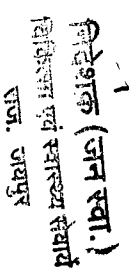 निदेशक (जन स्वा.)
चिकित्सा एवं स्वास्थ्य सेवायें
राज. जयपुर